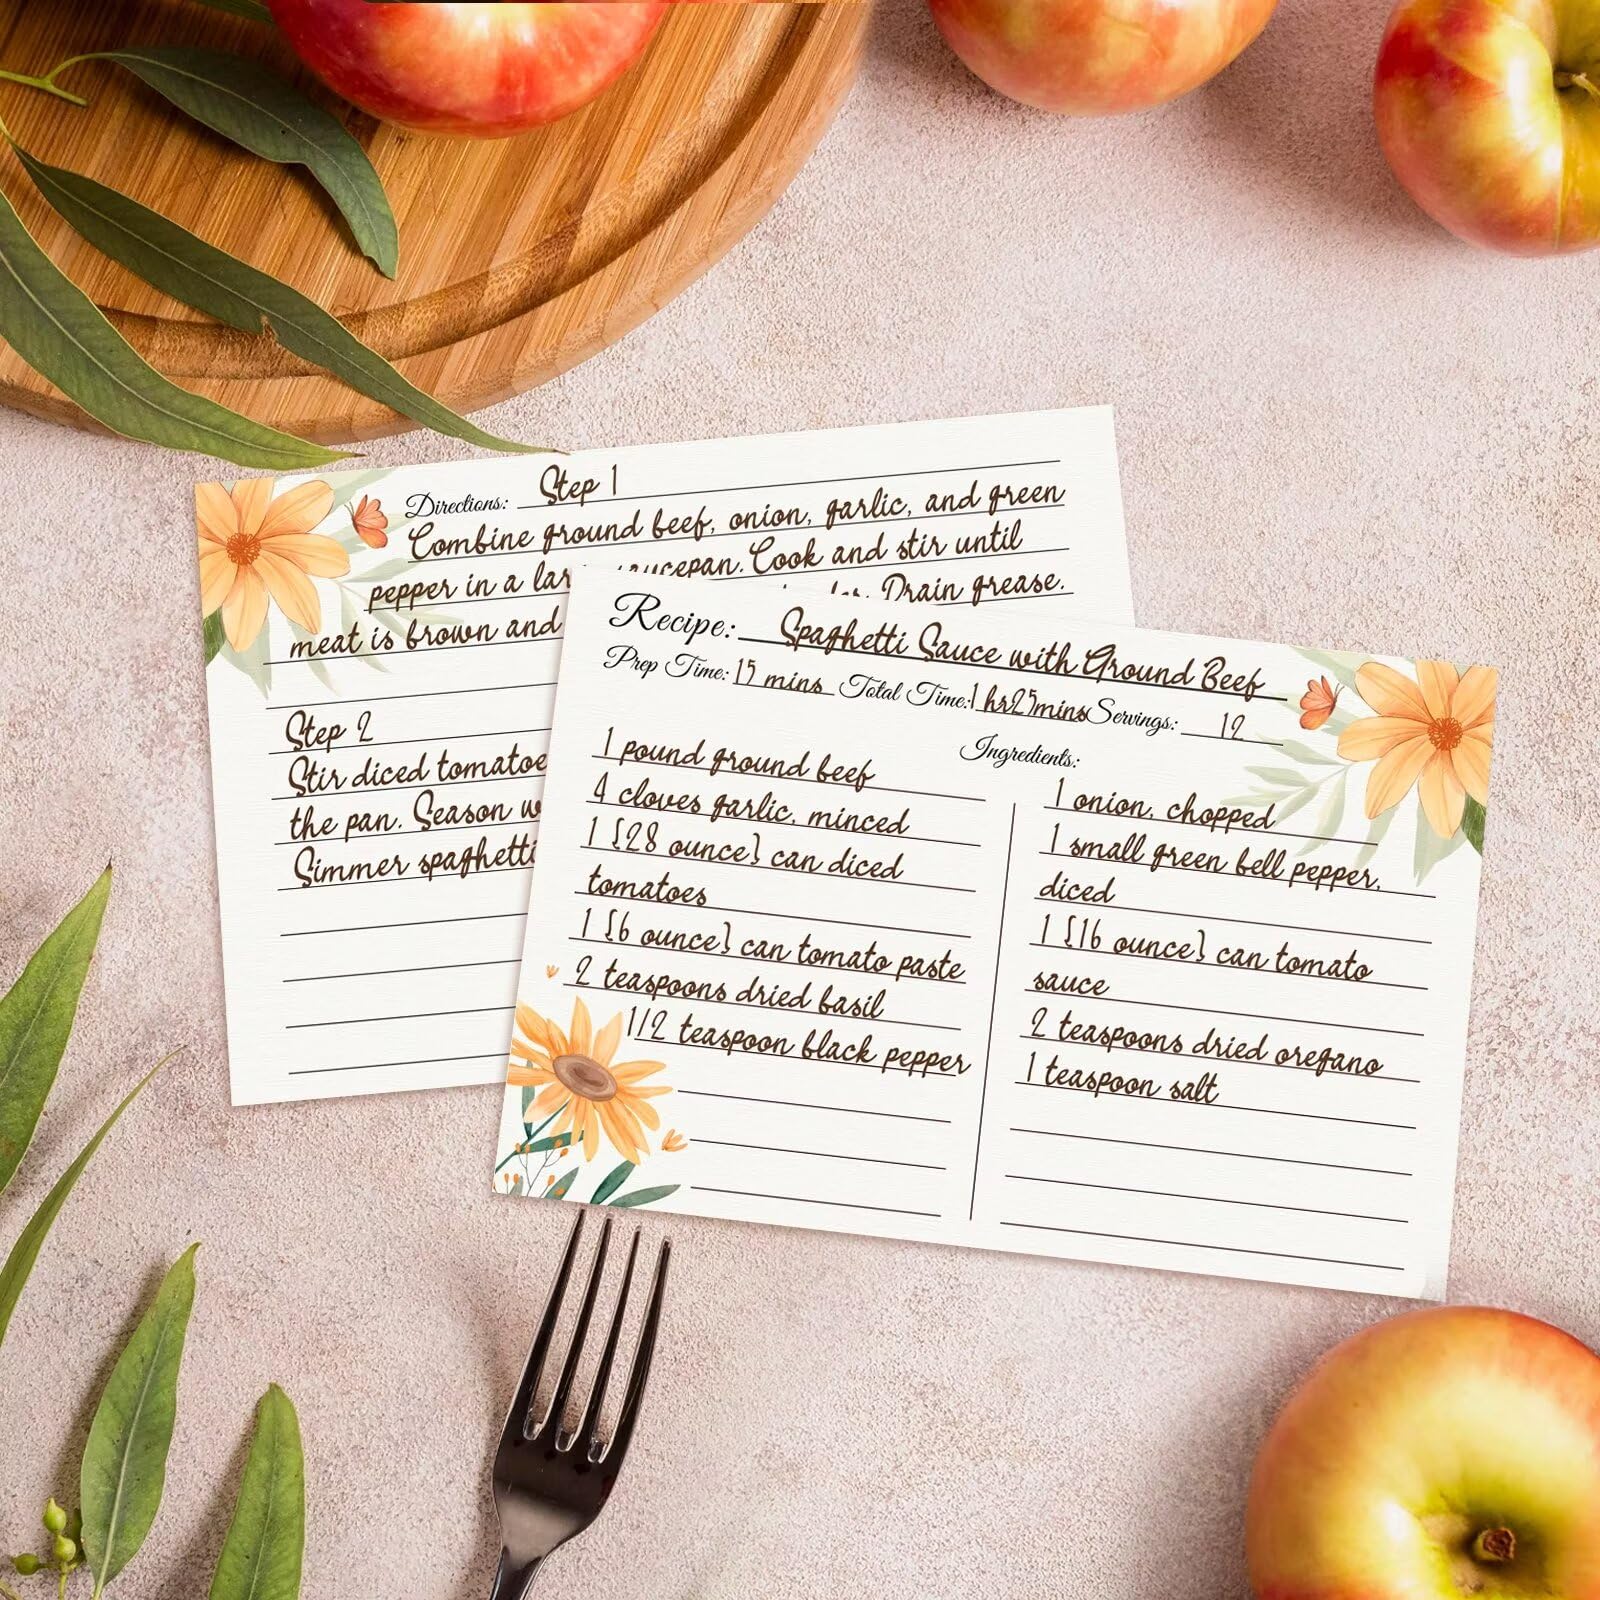 Directions: Step 1
Combine ground beef, onion, garlic, and green
pepper in a saucepan. Cook and stir until
meat is brown and Drain grease.
Step 2
Stir diced
the pan. Season
Simmer spaghetti
Recipe: Spaghetti Sauce with Ground Beef
Prep Time: 15 mins Total Time: 1 hr25mins Servings: 12
Ingredients:
1 pound ground beef
4 cloves garlic, minced
1 {28 ounce} can diced
tomatoes
1 {6 ounce} can tomato paste
2 teaspoons dried basil
1/2 teaspoon black pepper
1 onion, chopped
1 small green bell pepper,
diced
1 {16 ounce} can tomato
sauce
2 teaspoons dried oregano
1 teaspoon salt